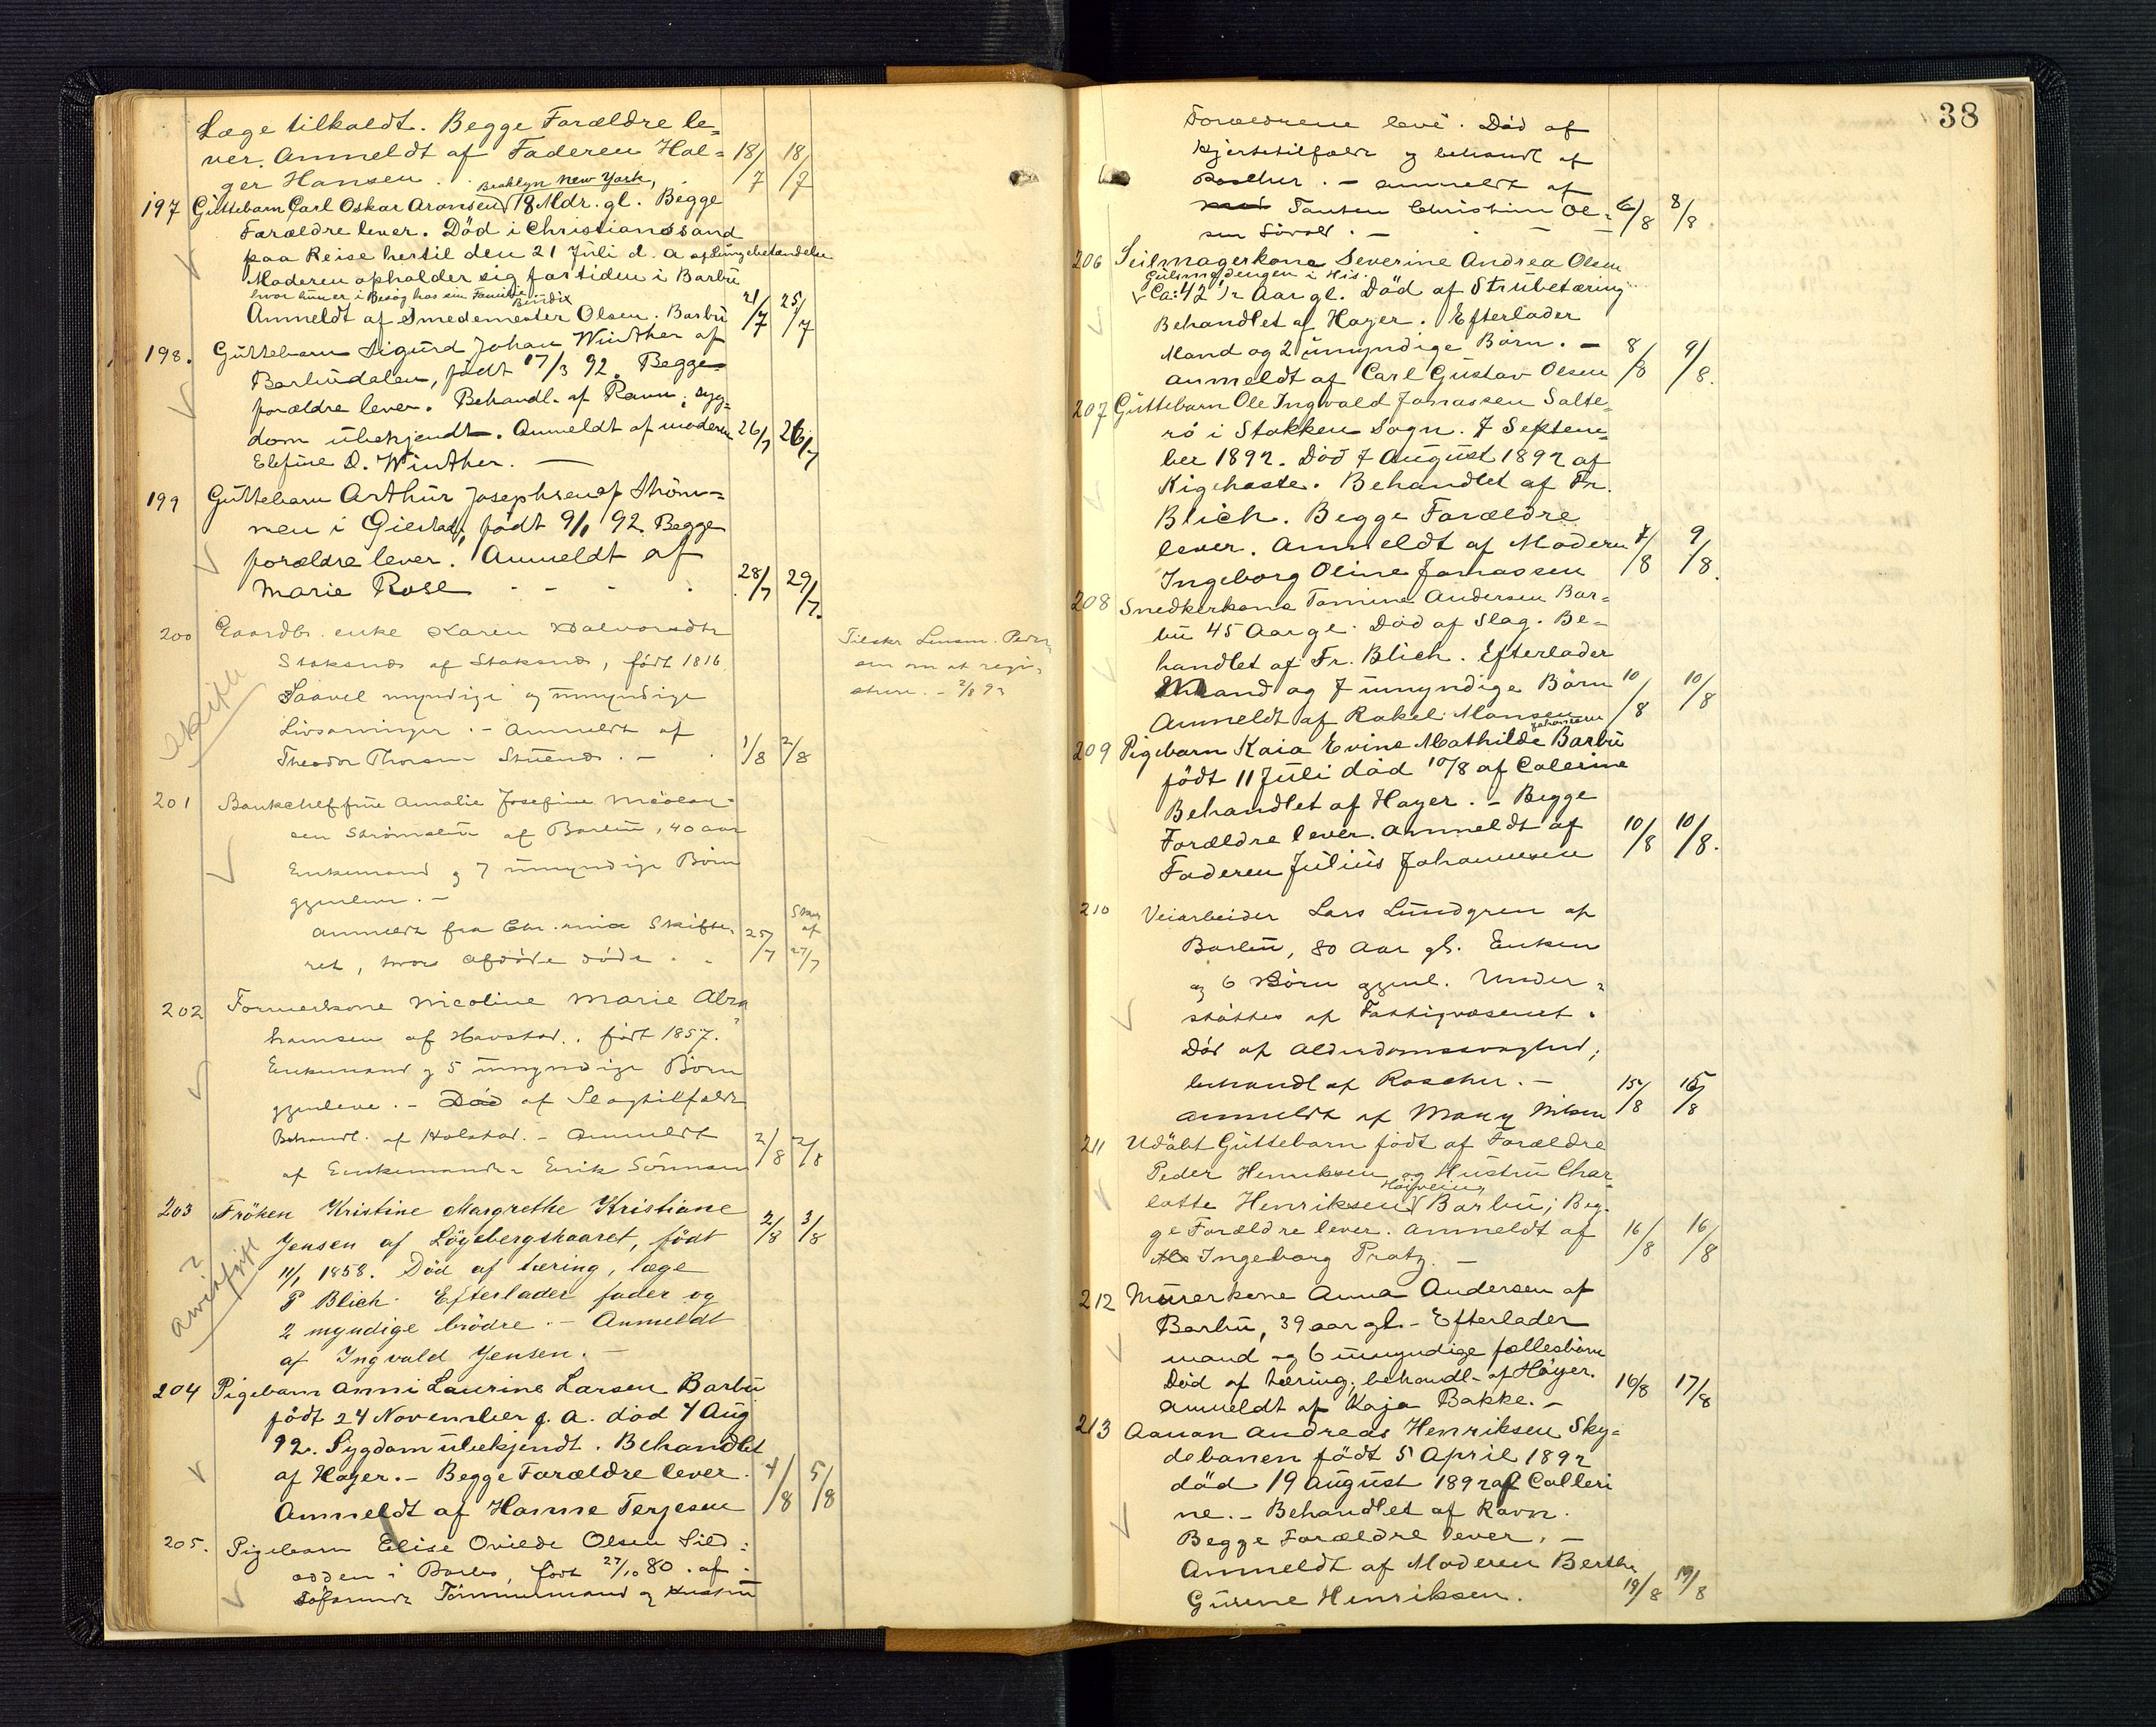 Læge tilkaldt. Begge Forældre le=
ver. Anmeldt af Faderen Hol= 18/7 18/7
ger Hansen.
Broklyn New York,
197 Guttebarn Carl Oskar Aronsen 18 Mdr. gl. Begge
Forældre lever. Död i Christianssand
paa Reise hertil den 21 Juli d. a af Lungebetændelse
Moderen opholder sig for tiden i Barbu
hvor hun er i Besög hos sin Familie
Bendix
Anmeldt af Smedemester Olsen. Barbu 21/7 25/7
198. Guttebarn Sigurd Johan Winther af
Barbudalen, födt 17/3 92. Begge
forældre lever. Behandl. af Ravn, syg=
dom ubekjendt. Anmeldt af moderen 26/7 26/7
Elefine D. Winther. —
199 Guttebarn Arthur Josephsen af Ström=
men i Gjerstad, födt 9/1 92. Begge
forældre lever. Anmeldt af
Marie Rose 28/7 29/7.
200 Gaardbr. enke Karen Halvorsdtr
Stoksnds af Stoksnds, födt 1816.
Saavel myndige og umyndige
Livsarvinger. - Anmeldt af
Theodor Thorsen Stuends. - 1/8 2/8
Tilskr Lensm. Peder
sen om at regi=
strere. - 2/8 92
skifte
201 Bankcheffrue Amalie Josefine Nicolay=
sen Strömsbu af Barbu, 40 aar
Enkemand og 7 umyndige Börn
gjenlever. -
Anmeldt fra Chr.ania Skifte=
ret, hvor afdöde döde. 25/7 Skr af 27/7
202 Formerkone Nicoline Marie Abra
hamsen af Havstad., födt 1857.
Enkemand og 5 umyndige Börn
gjenleve. - Död af Slagtilfælde
Behandl. af Holstad. - Anmeldt
af Enkemanden Erik Sörensen 2/8 2/8
203 Fröken Kristine Margrethe Kristiane
Jensen af Lögebergskaaret, födt 2/8 3/8
11/1 1858. Död af tæring, læge
P Blich. Efterlader fader og
2 myndige brödre. - Anmeldt
af Ingvald Jensen. -
204 Pigebarn Anni Laurine Larsen Barbu
födt 24 November f. A. död 4 Aug
92. Sygdom ubekjendt. Behandlet
af Hoyer. - Begge Forældre lever. 4/8 5/8
Anmeldt af Hanne Terjesen
205. Pigebarn Elise Ovilde Olsen Sild=
odden i Barbu, födt 27/10 80. af
Söfarende Tömmermand og Hustru
38
Forældrene leve. Död af
Hjertetilfælde og behandl af
Roscher. - Anmeldt af
Tanten Christine Ol= 6/8 8/8
sen Sövold. -
206 Seilmagerkone Severine Andrea Olsen
Gulsmedengen i His.
Ca: 42 1/2 Aar gl. Död af Strubetæring
Behandlet af Hoyer. Efterlader
Mand og 2 umyndige Börn. - 8/8 9/8.
Anmeldt af Carl Gustav Olsen
207 Guttebarn Ole Ingvald Jonassen Salte=
rö i Stokken Sogn. 7 Septem=
ber 1892. Död 7 August 1892 af
Kighoste. Behandlet af Fr.
Blich. Begge Forældre
lever. Anmeldt af Moderen 7/8 9/8.
Ingeborg Oline Jonassen
208 Snedkerkone Tomine Andersen Bar=
bu 45 Aar gl. Död af Slag. Be=
handlet af Fr. Blich. Efterlader
Mand og 7 umyndige Börn 10/8 10/8
Anmeldt af Rakel Monsen
Johannesen
209 Pigebarn Kaia Evine Mathilde Barbu
födt 11 Juli död 10/8 af Colerine
Behandlet af Hoyer. - Begge
Forældre lever. Anmeldt af 10/8 10/8.
Faderen Julius Johannesen
210 Veiarbeider Lars Lundgren af
Barbu, 80 Aar gl. Enken
og 6 Börn gjenl. Under=
stöttes af Fattigvæsenet.
Död af Alderdomssvaghed,
behandl af Roscher. -
Anmeldt af Mary Nilsen 15/8 15/8
211 Udöbt Guttebarn födt af Forældre
Peder Henriksen og Hustru Char=
Höiveien,
lotte Henriksen Barbu; Beg=
ge Forældre lever. Anmeldt af 16/8 16/8
Ingeborg Pratz. —
212 Murerkone Anna Andersen af
Barbu, 39 aar gl. - Efterlader
mand og 6 umyndige fællesbörn
Död af tæring, behandl. af Höyer.
Anmeldt af Kaja Bakke. - 16/8 17/8
213 Aanon Andreas Henriksen Sky=
debanen födt 5 April 1892
död 19 August 1892 af Colleri
ne. - Behandlet af Ravn.
Begge Forældre lever. -
Anmeldt af Moderen Berthe
Gurine Henriksen. 19/8 19/8